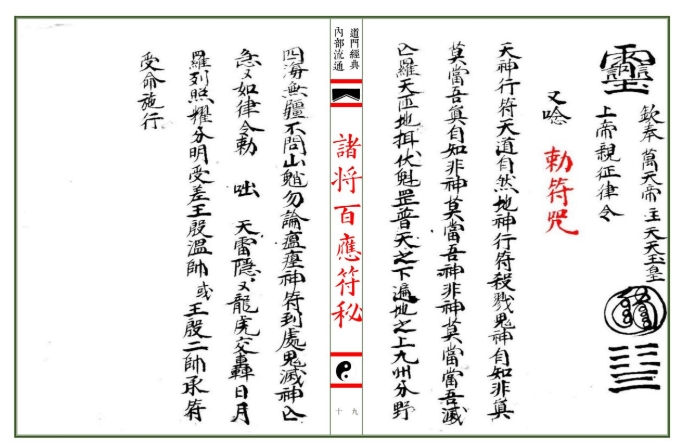 欽奉 萬天帝主天天玉皇
上帝親征律令
又唸 勅符咒
天神行符天道自然地神行符殺戮鬼神自如非真
莫當吾真自如非神莫當吾神非神莫當當吾滅
亾羅天匝地揖伏魁罡普天之下遍地之上九州分野
道門經典
內部流通
諸将百應符秘
十九
四海無疆不問山魈勿論瘟瘽神符到處鬼滅神亾
急又如律令勅 咄 天雷隱又龍虎交轟日月
羅列照耀分明受差王殷溫帥或王殷二帥承符
受命施行